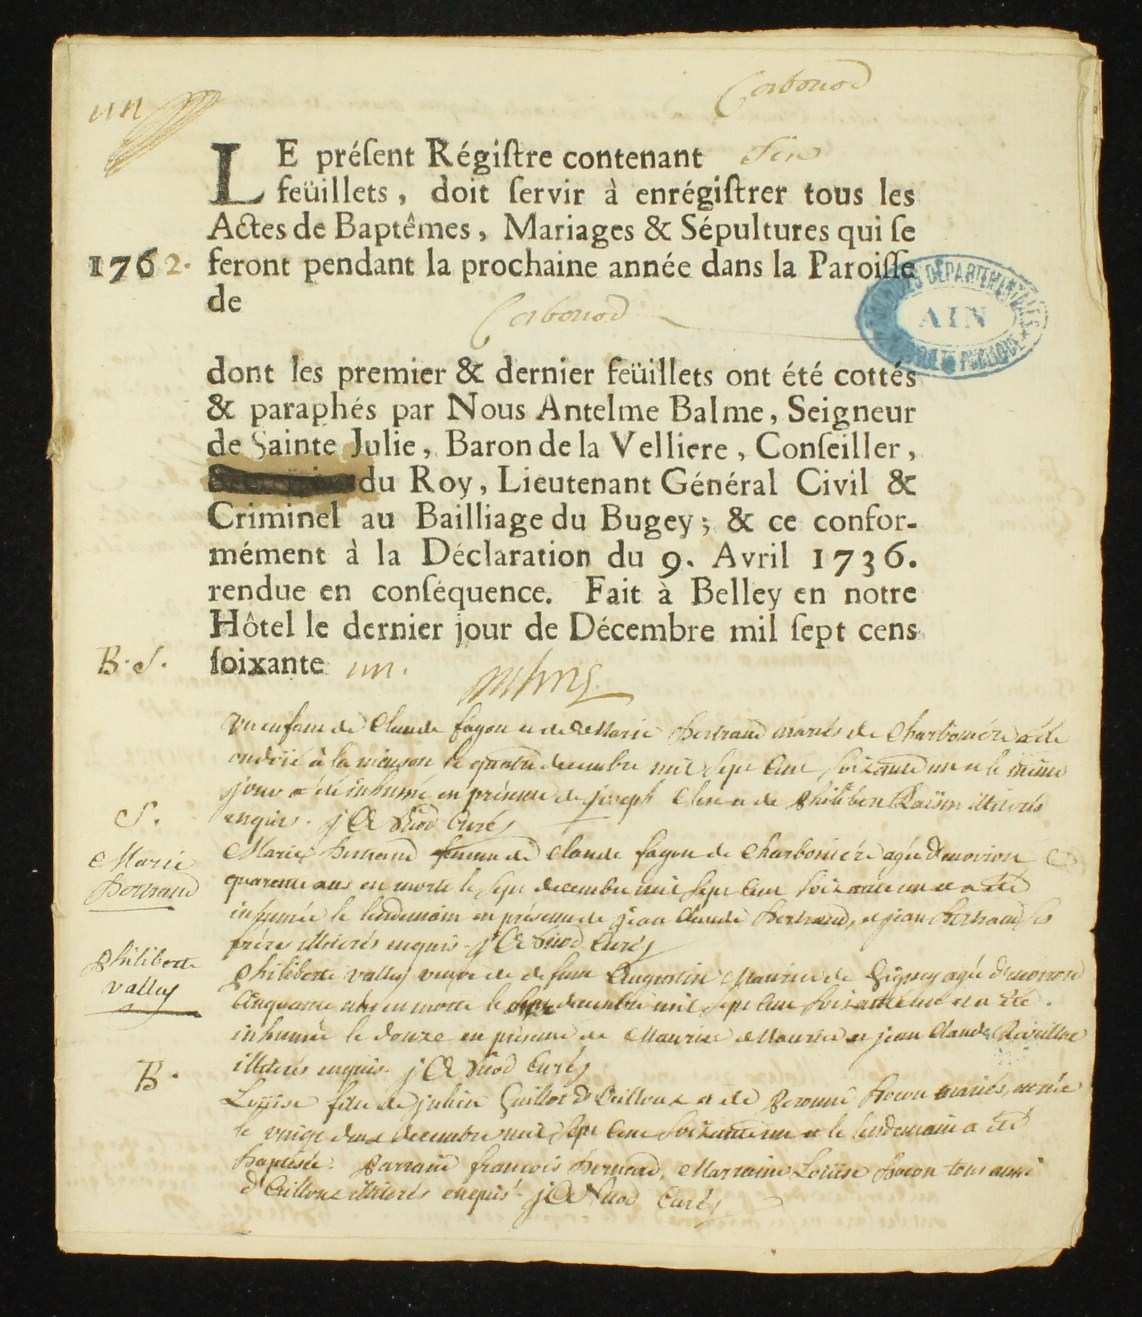 un
Corbonod
LE préſent Régiſtre contenant
feüillets, doit ſervir à enrégiſtrer tous les
Actes de Baptêmes, Mariages & Sépultures qui ſe
1762. feront pendant la prochaine année dans la Paroiſſe
de
Corbonod
ARCHIVES DÉPARTEMENTALES
AIN
dont les premier & dernier feüillets ont été cottés
& paraphés par Nous Antelme Balme, Seigneur
de Sainte Julie, Baron de la Velliere, Conſeiller,
du Roy, Lieutenant Général Civil &
Criminel au Bailliage du Bugey; & ce confor-
mément à la Déclaration du 9. Avril 1736.
rendue en conſéquence. Fait à Belley en notre
Hôtel le dernier jour de Décembre mil ſept cens
B. S. ſoixante un.
un enfant de Claude fagon et de Marie Bertrand mariés de Charbonière a été
ondoié à la maison le quatre decembre mil sept cent soixante un et le même
jour a été inhumé en présence de joseph et de philibert illiterés
S. enquis. Curé
Marie Bertrand
Marie Bertrand femme de Claude fagon de Charbonière agée d'environ
quarente ans est morte le sept decembre mil sept cent soixante un et a été
inhumée le lendemain en présence de jean Claude Bertrand, et jean Bertrand ses
frères illiterés enquis. Curé
philiberte vallet
philiberte vallet veuve de feu Augustin Maurice de Gigney agée d'environ
cinquante ans est morte le decembre mil sept cent soixante un et a été
inhumée le douze en présence de Maurice Maurice et jean Claude
illiterés enquis. Curé
B.
Louise fille de julien Guillot d'Eilloux et de mariés, née
le vingt deux decembre mil sept cent soixante un et le lendemain a été
Baptisée. Parrain françois Bernard, Marraine Louise tous aussi
d'Eilloux illiterés enquis. Curé